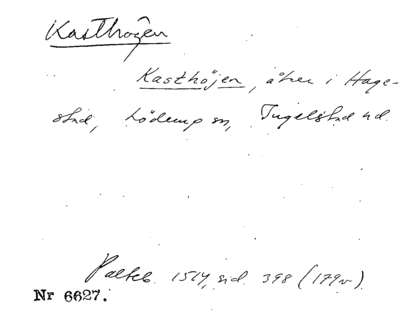 Kasthögen
Kasthöjen, åker i Hage-
stad, Löderup sn, Ingelstad hd.
Palteb. 1514, sid. 398 (179v).
Nr 6627.